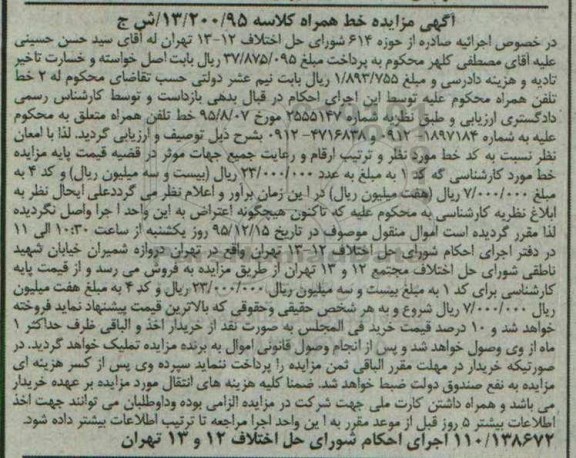 آگهی مزایده خط همراه کلاسه ۱۳/۲۰۰/۹۵/ش ج
در خصوص اجرائیه صادره از حوزه ۶۱۴ شورای حل اختلاف ۱۲-۱۳ تهران له آقای سید حسن حسینی
علیه آقای مصطفی کلهر محکوم به پرداخت مبلغ ۳۷/۸۷۵/۰۹۵ ریال بابت اصل خواسته و خسارت تاخیر
تادیه و هزینه دادرسی و مبلغ ۱/۸۹۳/۷۵۵ ریال بابت نیم عشر دولتی حسب تقاضای محکوم له ۲ خط
تلفن همراه محکوم علیه توسط این اجرای احکام در قبال بدهی بازداست و توسط کارشناس رسمی
دادگستری ارزیابی و طبق نظریه شماره ۲۵۵۵۱۴۷ مورخ ۹۵/۸/۰۷ خط تلفن همراه متعلق به محکوم
علیه به شماره ۱۸۹۷۱۸۴-۰۹۱۲ و ۴۷۱۶۸۳۸-۰۹۱۲ بشرح ذیل توصیف و ارزیابی گردید. لذا با امعان
نظر نسبت به کد خط مورد نظر و ترتیب ارقام و رعایت جمیع جهات موثر در قضیه قیمت پایه مزایده
خط مورد کارشناسی که کد ۱ به مبلغ به عدد ۲۳/۰۰۰/۰۰۰ ریال (بیست و سه میلیون ریال) و کد ۴ به
مبلغ ۷/۰۰۰/۰۰۰ ریال (هفت میلیون ریال) در این زمان برآور و اعلام نظر می گرددعلی ایحال نظر به
ابلاغ نظریه کارشناسی به محکوم علیه که تاکنون هیچگونه اعتراض به این واحد ا جرا واصل نگردیده
لذا مقرر گردیده است اموال منقول موصوف در تاریخ ۹۵/۱۲/۱۵ روز یکشنبه از ساعت ۱۰:۳۰ الی ۱۱
در دفتر اجرای احکام شورای حل اختلاف ۱۲-۱۳ تهران واقع در تهران دروازه شمیران خیابان شهید
ناطقی شورای حل اختلاف مجتمع ۱۲ و ۱۳ تهران از طریق مزایده به فروش می رسد و از قیمت پایه
کارشناسی برای کد ۱ به مبلغ بیست و سه میلیون ریال ۲۳/۰۰۰/۰۰۰ ریال و کد ۴ به مبلغ هفت میلیون
ریال ۷/۰۰۰/۰۰۰ ریال شروع و به هر شخص حقیقی وحقوقی که بالاترین قیمت پیشنهاد نماید فروخته
خواهد شد و ۱۰ درصد قیمت خرید فی المجلس به صورت نقد از خریدار اخذ و الباقی ظرف حداکثر ۱
ماه از وی وصول خواهد شد و پس از انجام وصول قانونی اموال به برنده مزایده تملیک خواهد گردید. در
صورتیکه خریدار در مهلت مقرر الباقی ثمن مزایده را پرداخت ننماید سپرده وی پس از کسر هزینه ای
مزایده به نفع صندوق دولت ضبط خواهد شد. ضمنا کلیه هزینه های انتقال مورد مزایده بر عهده خریدار
می باشد و همراه داشتن کارت ملی جهت شرکت در مزایده الزامی بوده وداوطلبان می توانند جهت اخذ
اطلاعات بیشتر ۵ روز قبل از موعد مقرر به ا ین واحد اجرا مراجعه تا ترتیب اطلاعات بیشتر داده شود.
۱۱۰/۱۳۸۶۷۲ اجرای احکام شورای حل اختلاف ۱۲ و ۱۳ تهران